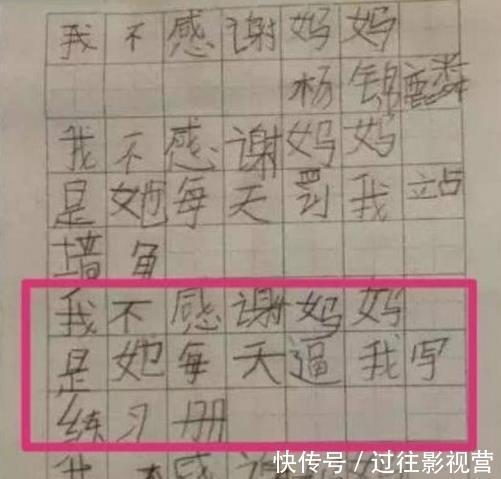 我不感谢妈妈
杨锦麟
我不感谢妈妈
是她每天罚我站
墙角
我不感谢妈妈
是她每天逼我写
练习册
我不感谢妈妈
快传号/过往影视营